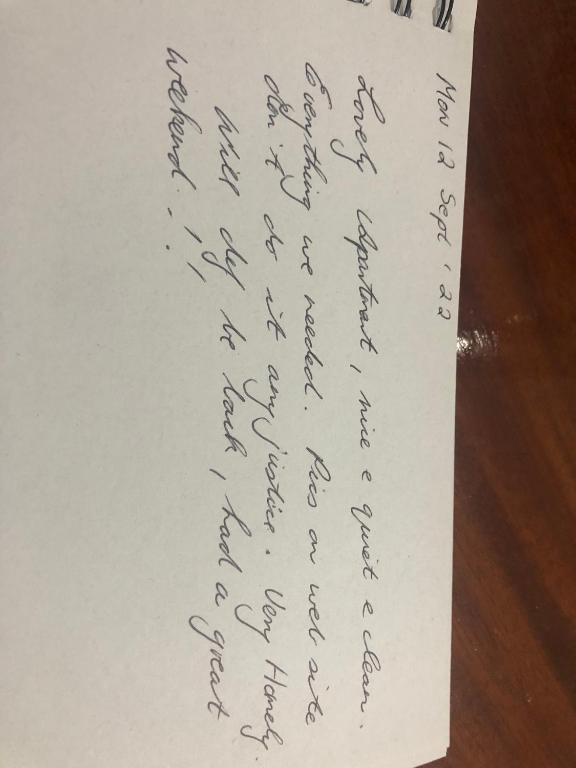 Mon 12 Sept '22
Lovely Apartment, nice & quiet & clean.
Everything we needed. Pics on web site
don't do it any justice. Very Homely.
Will def be back, had a great
weekend.!!